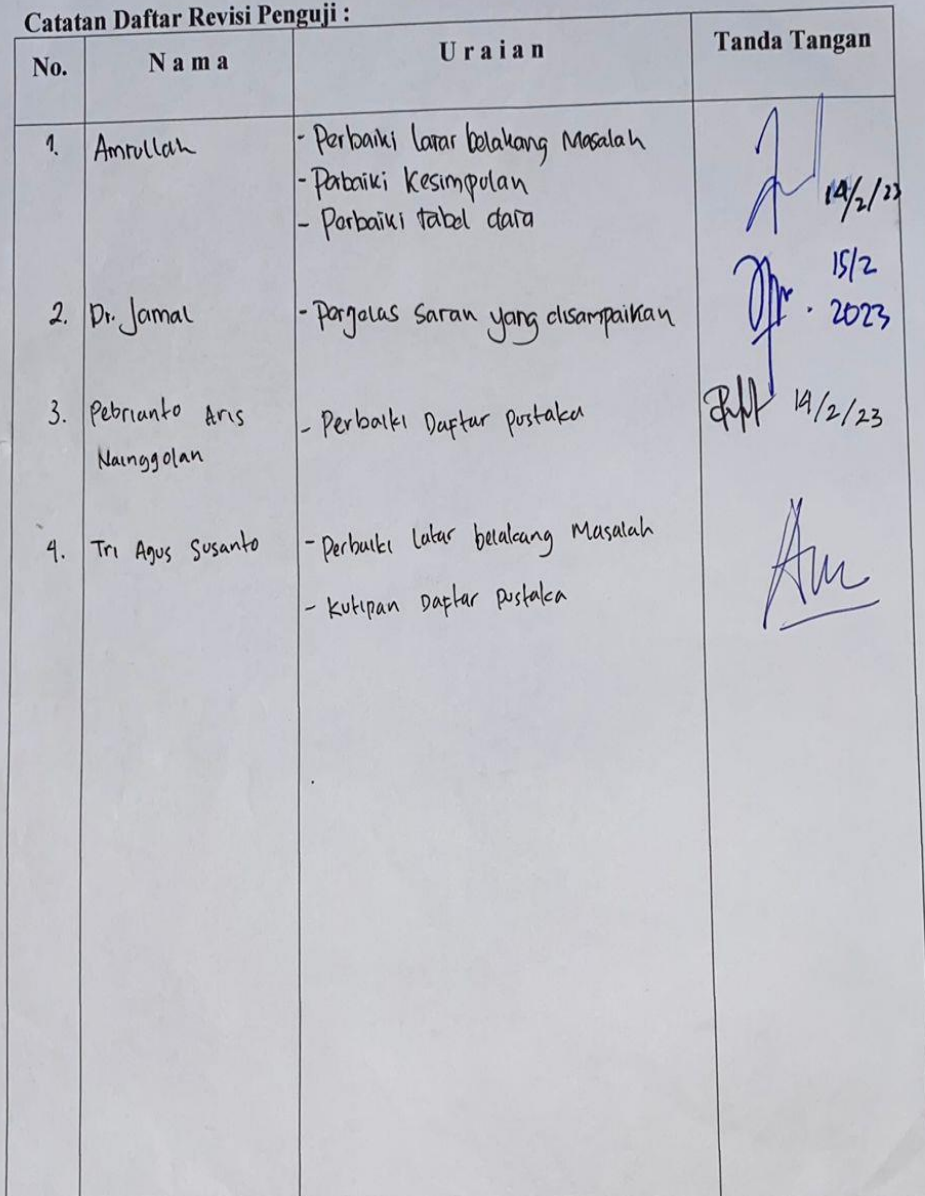 Catatan Daftar Revisi Penguji :
No. N a m a U r a i a n Tanda Tangan
1. Amrullah - Perbaiki latar belakang Masalah
- Perbaiki Kesimpulan
- Perbaiki tabel data 14/2/23
15/2
2. Dr. Jamal - Perjelas Saran yang disampaikan 2023
3. Pebrianto Aris - Perbaiki Daftar pustaka 14/2/23
Nainggolan
4. Tri Agus Susanto - Perbaiki latar belakang Masalah
- Kutipan Daftar pustaka